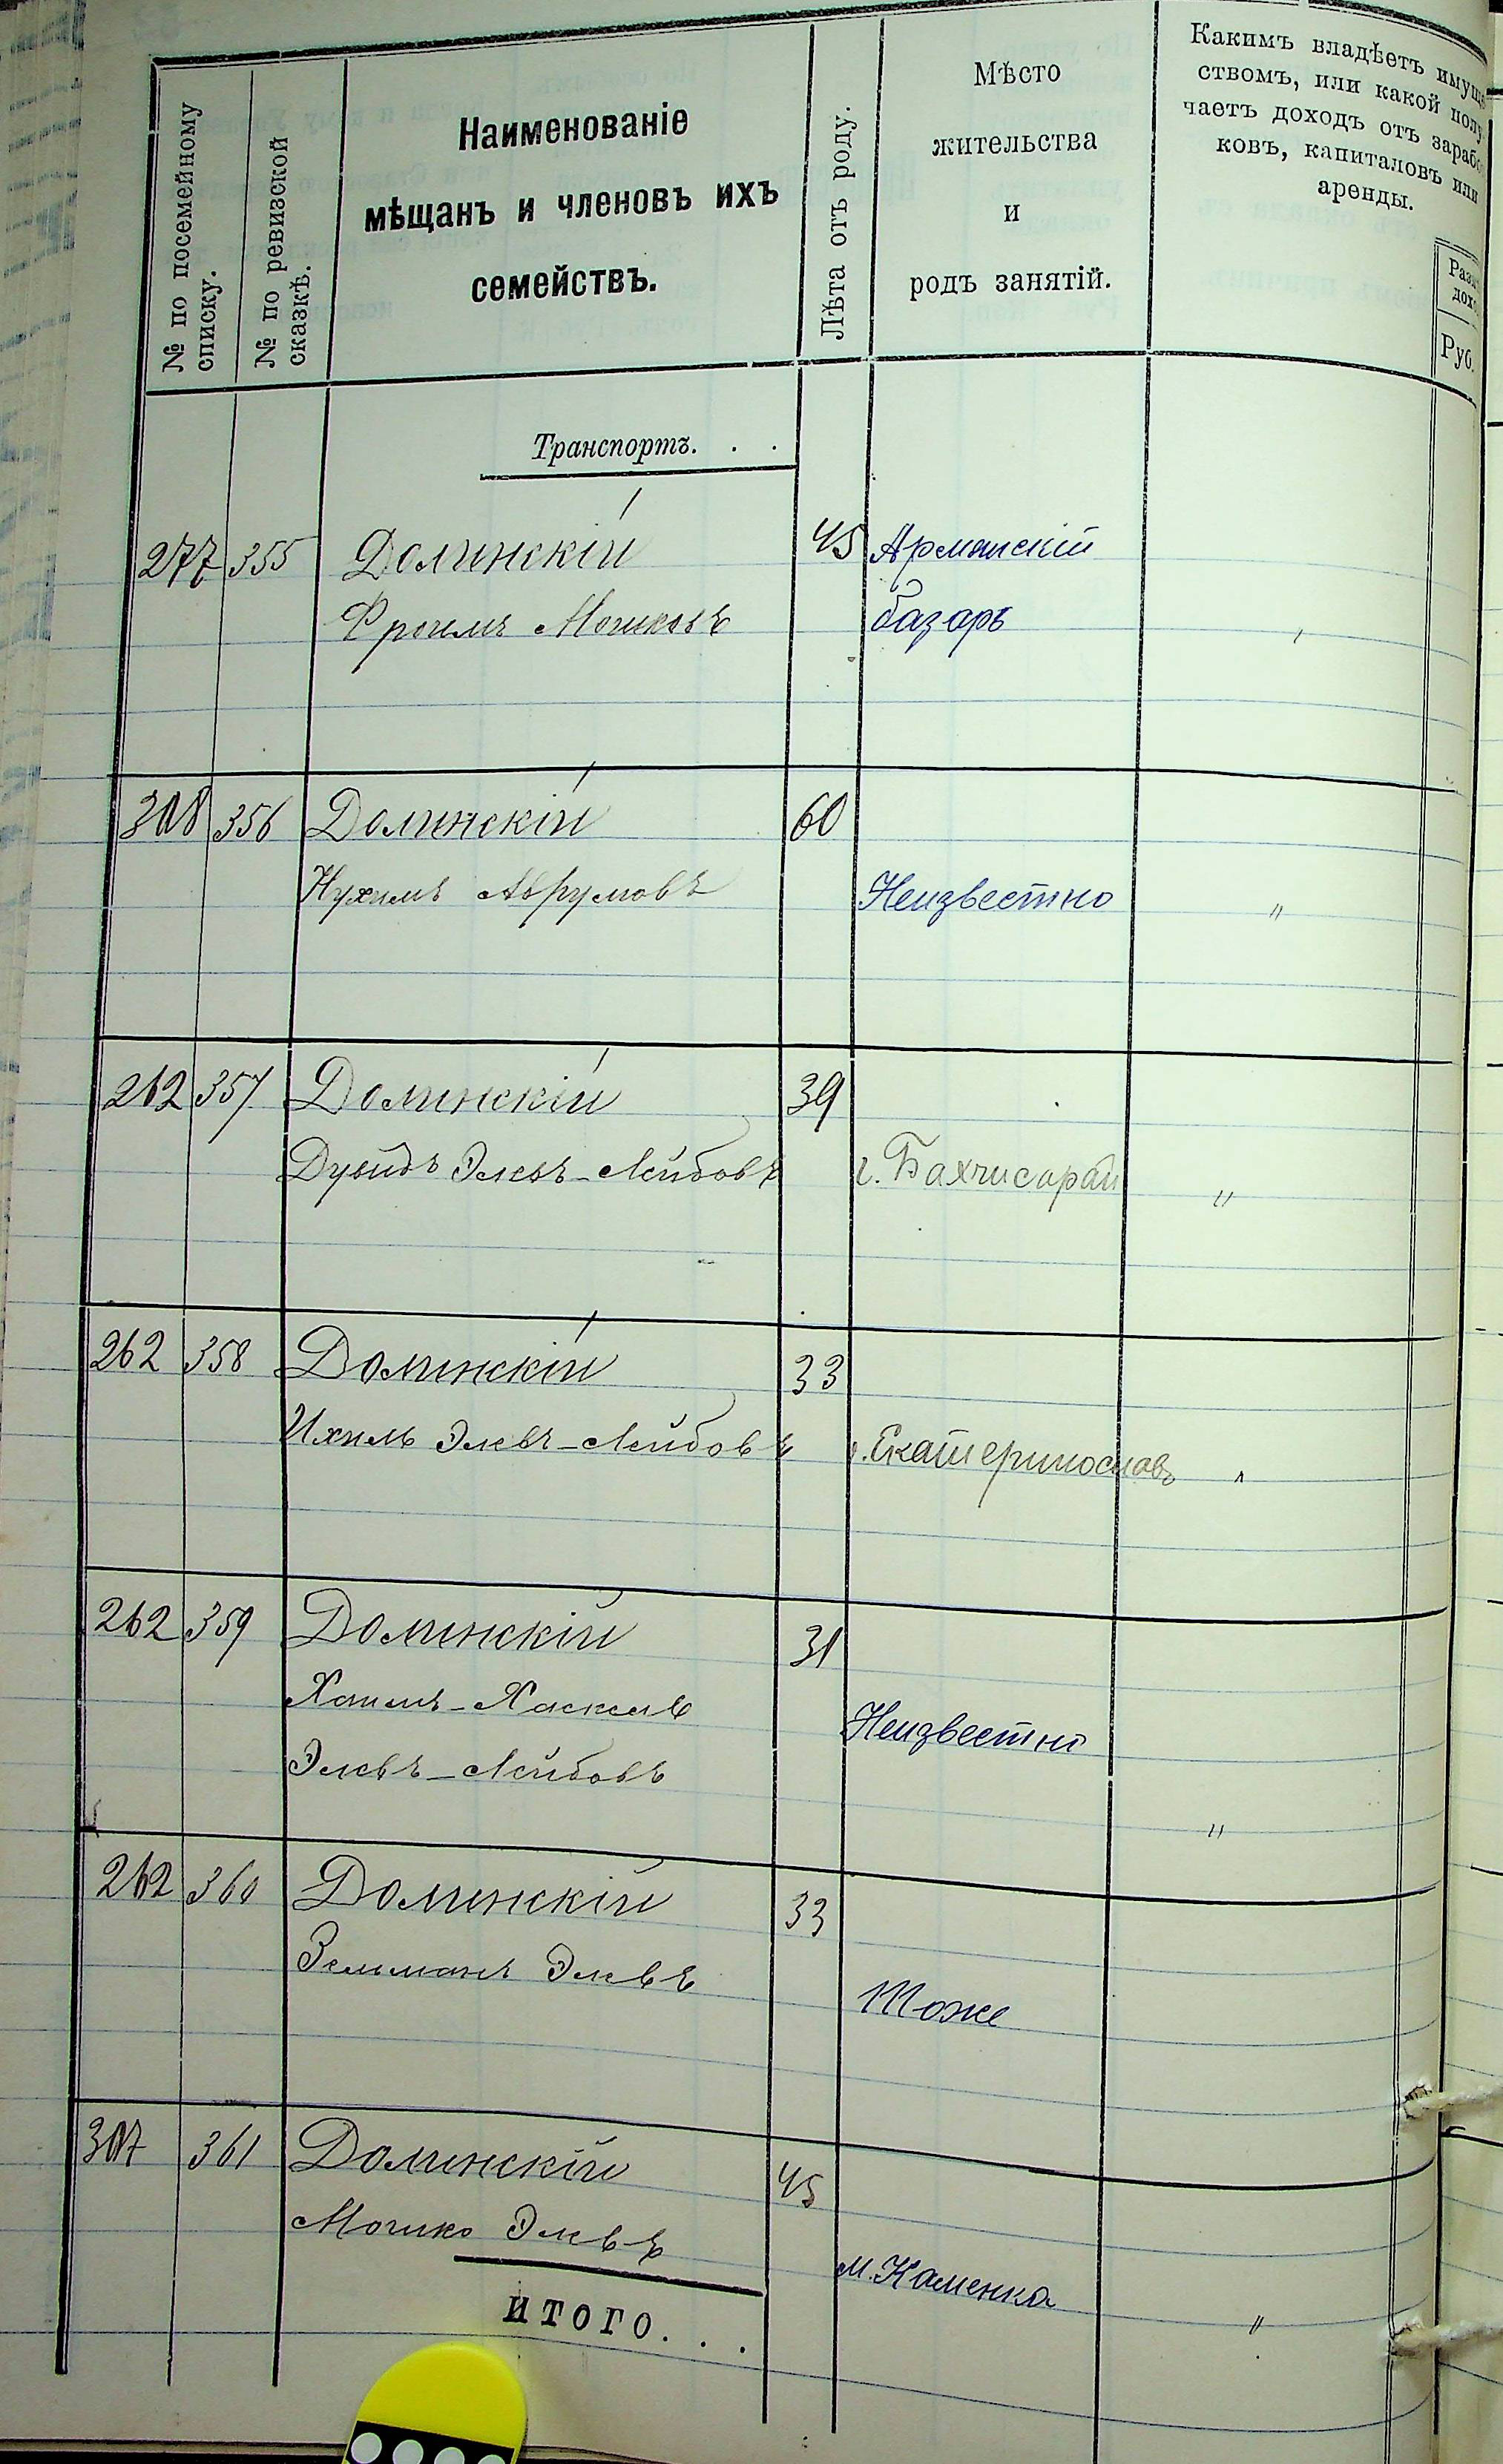 № по посемейному
списку.
№ по ревизской
сказкѣ.
Наименованіе
мѣщанъ и членовъ ихъ
семействъ.
Лѣта отъ роду.
Мѣсто
жительства
и
родъ занятій.
Какимъ владѣетъ имуще
ствомъ, или какой полу
чаетъ доходъ отъ зарабо
ковъ, капиталовъ или
аренды.
Руб.
Транспортъ. . .
277 355 Долинскій 45 Армянскій
Фроимъ Мошковъ базаръ
308 356 Долинскій 60
Нухимъ Аврумовъ Неизвестно "
262 357 Долинскій 39
Дувидъ Элевъ-Лейбовъ г. Бахчисарай "
262 358 Долинскій 33
Ихиль Элевъ-Лейбовъ г. Екатеринославъ "
262 359 Долинскій 31
Хаимъ-Хаскель Неизвестно
Элевъ-Лейбовъ "
262 360 Долинскій 33
Зельманъ Элевъ Тоже
307 361 Долинскій 45
Мошко Элевъ м. Каменка "
ИТОГО. . .